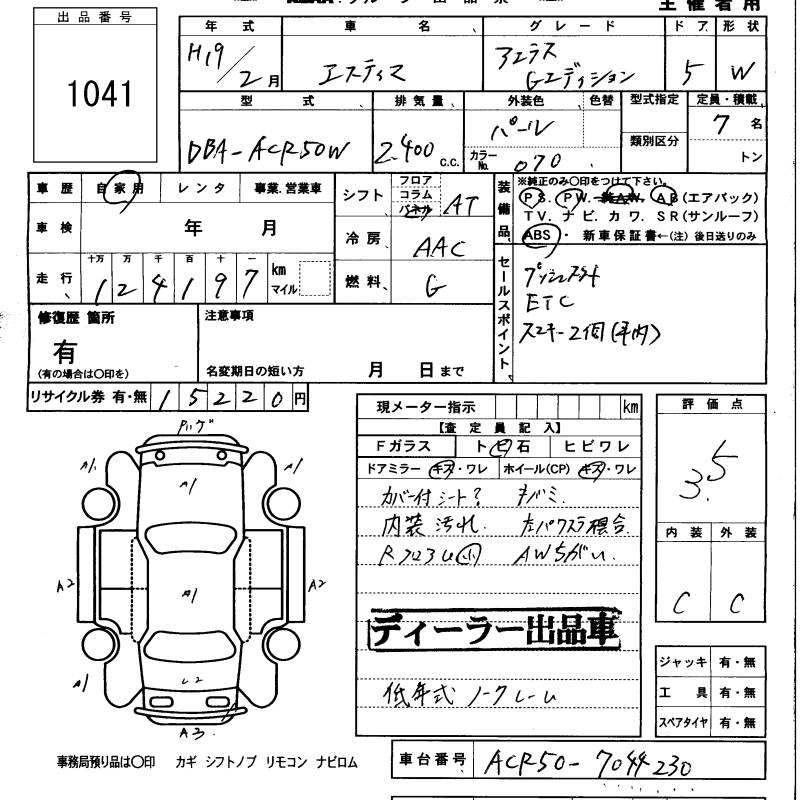 主催者用
出品番号
1041
年式 車名 グレード ドア 形状
H19/2月 エスティマ アエラス Gエディション 5 W
型式 排気量 外装色 色替 型式指定 定員・積載
DBA-ACR50W 2,400 c.c. パール 7名
カラーNo. 070 類別区分 トン
車歴 自家用 レンタ 事業.営業車
車検 年 月
走行 十万 万 千 百 十 一
124197 km マイル
シフト フロア コラム パネル AT
冷房 AAC
燃料 G
装備品 ※純正のみ〇印をつけて下さい。
PS. PW. AW. AB(エアバック)
TV. ナビ. カワ. SR(サンルーフ)
ABS・ 新車保証書←(注)後日送りのみ
セールスポイント
プッシュスタート
ETC
スマキー2個(車内)
修復歴 箇所
有
(有の場合は〇印を)
注意事項
名変期日の短い方 月 日まで
リサイクル券 有・無 15220円
現メーター指示 km
【査定員記入】
Fガラス ト ビ 石 ヒビワレ
ドアミラー キズ・ワレ ホイール(CP) キズ・ワレ
カバー付シート? キバミ
内装汚れ.
AWちがい.
ディーラー出品車
低年式 ノークレーム
評価点
3.5
内装 外装
C C
ジャッキ 有・無
工具 有・無
スペアタイヤ 有・無
A1 A1
A1
A2 A1 A2
A1
A3
事務局預り品は〇印 カギ シフトノブ リモコン ナビロム
車台番号 ACR50-7044230